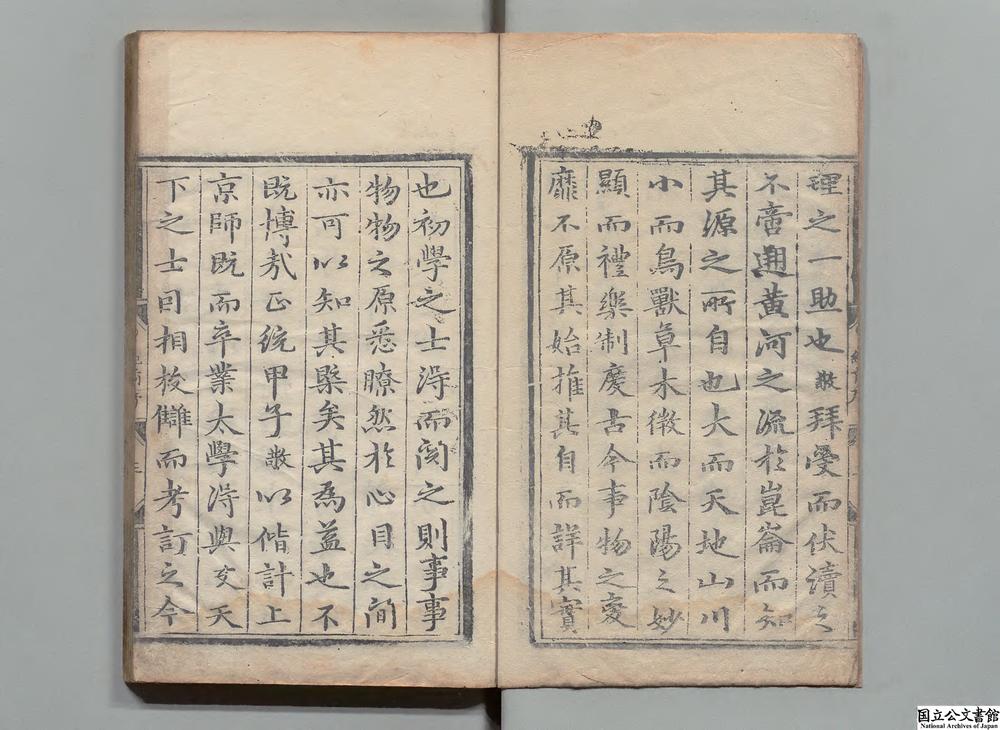 理之一助也敬拜受而伏讀之
不啻遡黃河之流於崑崙而知
其源之所自也大而天地山川
小而鳥獸草木微而陰陽之妙
顯而禮樂制度古今事物之變
靡不原其始推其自而詳其實
也初學之士得而閱之則事事
物物之原悉瞭然於心目之間
亦可以知其槩矣其爲益也不
既博哉正統甲子敬以偕計上
京師既而卒業太學得與友天
下之士日相校讎而考訂之今
国立公文書館
National Archives of Japan